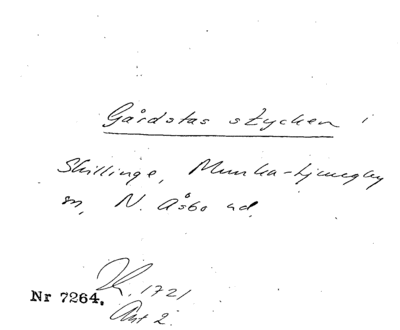 Gårdstas stycken i
Skillinge, Munka-Ljungby
sn, N. Åsbo hd.
Nr 7264. 1721
Akt 2.